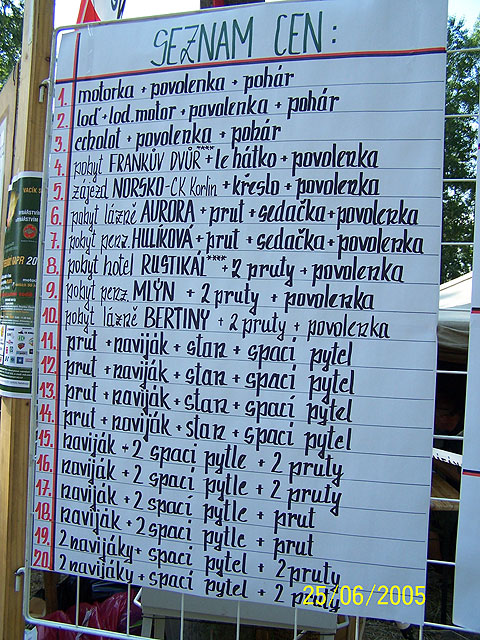 SEZNAM CEN:
1. motorka + povolenka + pohár
2. loď + lod. motor + povolenka + pohár
3. echolot + povolenka + pohár
4. pobyt FRANKŮV DVŮR*** + lehátko + povolenka
5. zájezd NORSKO - CK Korlin + křeslo + povolenka
6. pobyt lázně AURORA + prut + sedačka + povolenka
7. pobyt penz. HULÍKOVÁ + prut + sedačka + povolenka
8. pobyt hotel RUSTIKAL**** + 2 pruty + povolenka
9. pobyt penz. MLÝN + 2 pruty + povolenka
10. pobyt lázně BERTINY + 2 pruty + povolenka
11. prut + naviják + stan + spací pytel
12. prut + naviják + stan + spací pytel
13. prut + naviják + stan + spací pytel
14. prut + naviják + stan + spací pytel
15. naviják + 2 spací pytle + 2 pruty
16. naviják + 2 spací pytle + 2 pruty
17. naviják + 2 spací pytle + prut
18. naviják + 2 spací pytle + prut
19. 2 navijáky + spací pytel + 2 pruty
20. 2 navijáky + spací pytel + 2 pruty
25/06/2005